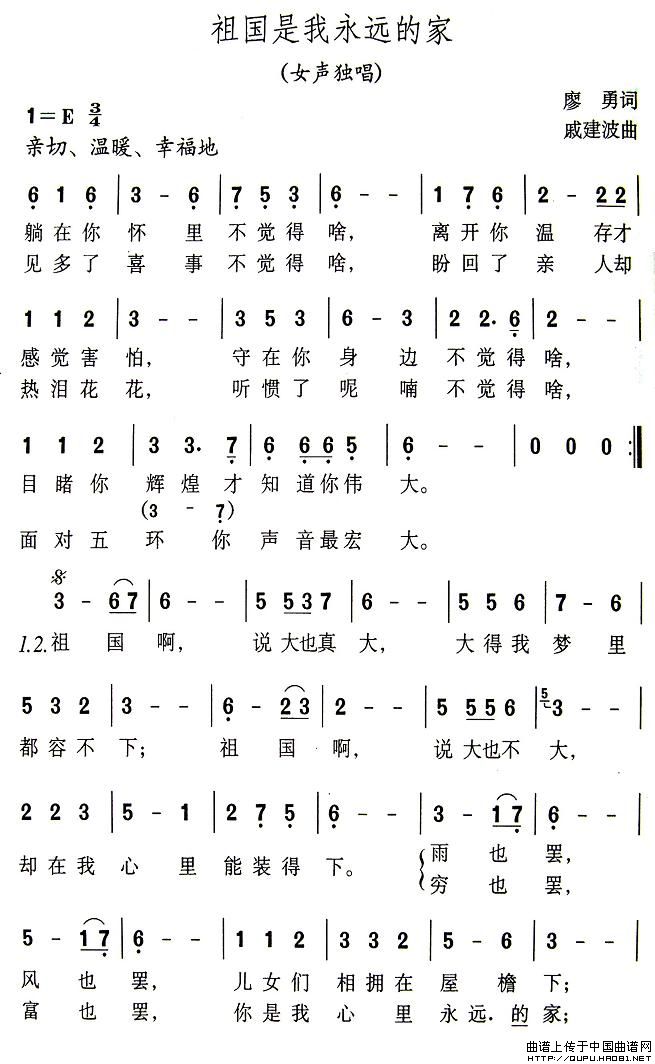 祖国是我永远的家
(女声独唱)
1=E 3/4
廖 勇词
亲切、温暖、幸福地
戚建波曲
6 1 6 | 3 - 6 | 7 5 3 | 6 - - | 1 7 6 | 2 - 2 2 |
躺在你 怀 里 不觉得 啥, 离开你 温 存才
见多了 喜 事 不觉得 啥, 盼回了 亲 人却
1 1 2 | 3 - - | 3 5 3 | 6 - 3 | 2 2. 6 | 2 - - |
感觉害 怕, 守在你 身 边 不觉得 啥,
热泪花 花, 听惯了 呢 喃 不觉得 啥,
1 1 2 | 3 3. 7 | 6 6 6 5 | 6 - - | 0 0 0 :‖
目睹你 辉煌才 知道你伟 大。
(3 - 7)
面对五 环 你 声音最宏 大。
3 - 6 7 | 6 - - | 5 5 3 7 | 6 - - | 5 5 6 | 7 - 6 |
1.2.祖 国 啊, 说大也真 大, 大得我 梦 里
5 3 2 | 3 - - | 6 - 2 3 | 2 - - | 5 5 5 6 | 5 3 - - |
都容不 下; 祖 国 啊, 说大也不 大,
2 2 3 | 5 - 1 | 2 7 5 | 6 - - | 3 - 1 7 | 6 - - |
却在我 心 里 能装得 下。 雨 也 罢,
穷 也 罢,
5 - 1 7 | 6 - - | 1 1 2 | 3 3 2 | 5 - 6 | 3 - - |
风 也 罢, 儿女们 相拥在 屋 檐 下;
富 也 罢, 你是我 心 里 永远.的 家;
曲谱上传于中国曲谱网
HTTP://QUPU.HAO81.NET